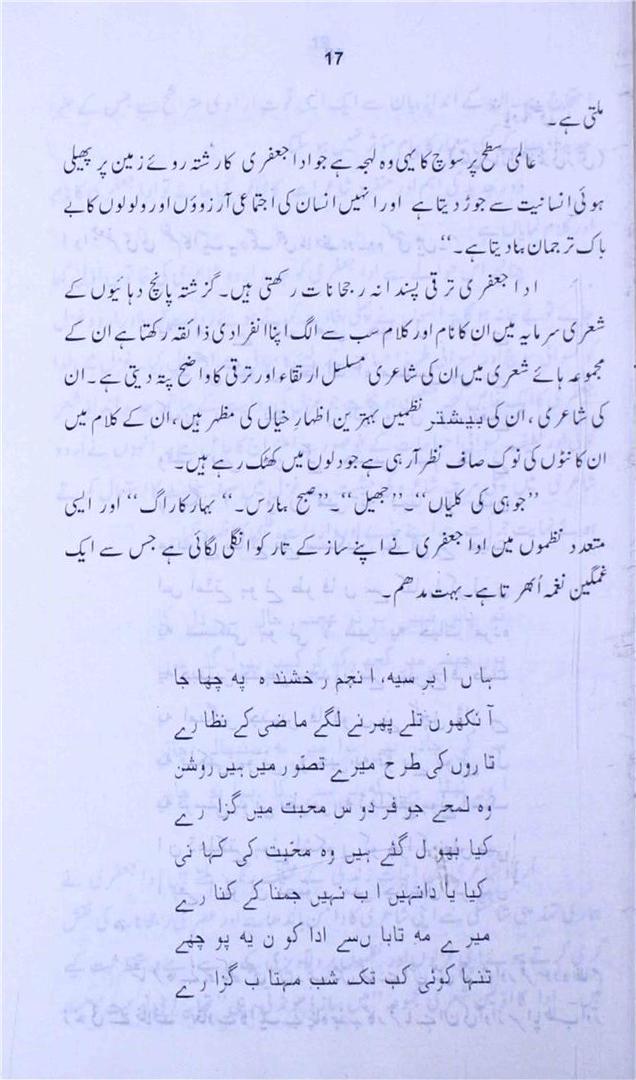 17
ملتی ہے۔
عالمی سطح پر سوچ کا یہی وہ لہجہ ہے جو ادا جعفری کا رشتہ روئے زمین پر پھیلی
ہوئی انسانیت سے جوڑ دیتا ہے اور انہیں انسان کی اجتماعی آرزوؤں اور ولولوں کا بے
باک ترجمان بنا دیتا ہے۔“
ادا جعفری ترقی پسندانہ رجحانات رکھتی ہیں۔ گزشتہ پانچ دہائیوں کے
شعری سرمایہ میں ان کا نام اور کلام سب سے الگ اپنا انفرادی ذائقہ رکھتا ہے ان کے
مجموعہ ہائے شعری میں ان کی شاعری مسلسل ارتقاء اور ترقی کا واضح پتہ دیتی ہے۔ ان
کی شاعری، ان کی بیشتر نظمیں بہترین اظہارِ خیال کی مظہر ہیں، ان کے کلام میں
ان کانٹوں کی نوک صاف نظر آ رہی ہے جو دلوں میں کھٹک رہے ہیں۔
”جوہی کی کلیاں“۔ ”جھیل“۔ ”صبح بنارس۔“ بہار کا راگ“ اور ایسی
متعدد نظموں میں ادا جعفری نے اپنے ساز کے تار کو انگلی لگائی ہے جس سے ایک
غمگین نغمہ اُبھرتا ہے۔ بہت مدھم۔
ہاں ابر سیہ، انجم رخشندہ پہ چھا جا
آنکھوں تلے پھرنے لگے ماضی کے نظارے
تاروں کی طرح میرے تصّور میں ہیں روشن
وہ لمحے جو فردوس محبت میں گزارے
کیا بُھول گئے ہیں وہ محّبت کی کہانی
کیا یاد انہیں اب نہیں جمنا کے کنارے
میرے مہ تاباں سے ادا کون یہ پوچھے
تنہا کوئی کب تک شب مہتاب گزارے